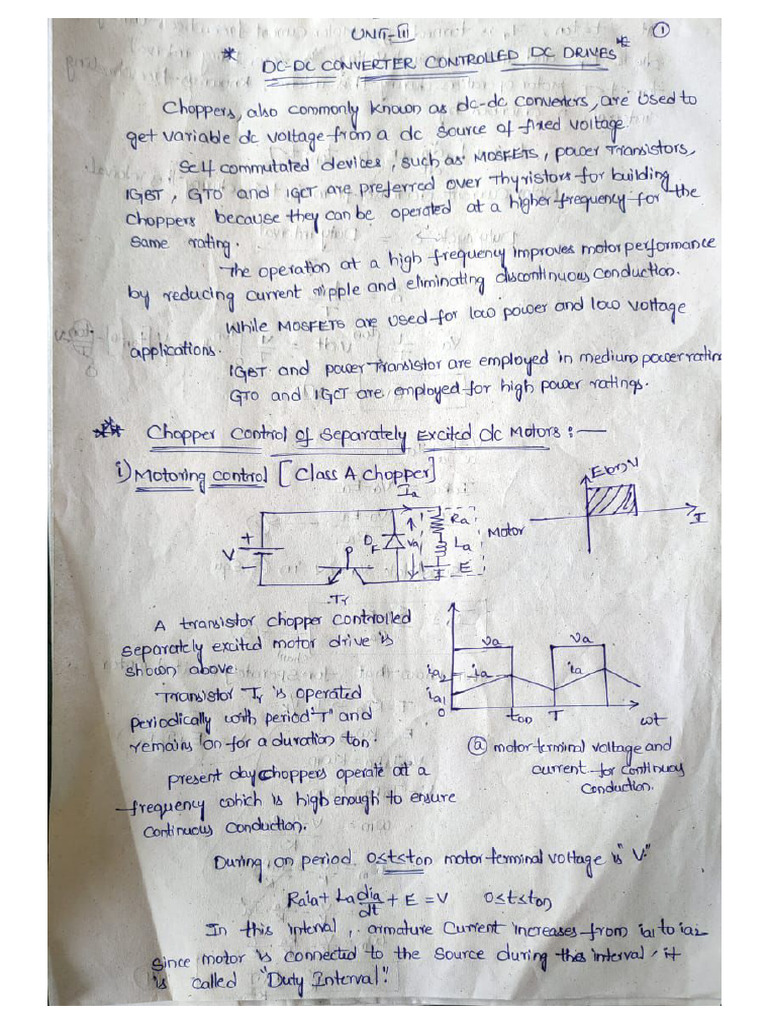 UNIT-II
①
* DC-DC CONVERTER CONTROLLED DC DRIVES *
Choppers, also commonly known as dc-dc converters, are used to
get variable dc voltage from a dc source of fixed voltage.
Self commutated devices, such as MOSFETS, power Transistors,
IGBT, GTO and IGCT are preferred over Thyristors for building
choppers because they can be operated at a higher frequency for the
same rating.
The operation at a high frequency improves motor performance
by reducing current ripple and eliminating discontinuous conduction.
While MOSFETS are used for low power and low voltage
applications.
IGBT and power Transistor are employed in medium power rating
GTO and IGCT are employed for high power ratings.
** Chopper control of Separately Excited dc Motors :—
i) Motoring control [Class A chopper]
Ia
E(or) V
I
V
+
-
P
DF
Va
Ra
La
E
Motor
Tr
A transistor chopper controlled
separately excited motor drive is
shown above.
Transistor Tr is operated
periodically with period "T" and
remains on for a duration ton.
present day choppers operate at a
frequency which is high enough to ensure
continuous conduction.
va
va
ia2
ia
ia
ia1
0
ton
T
wt
ⓐ motor terminal voltage and
current for continuous
conduction.
During, on period 0≤t≤ton motor terminal voltage is "V."
Raia + La dia/dt + E = V 0≤t≤ton
In this interval, armature current increases from ia1 to ia2
Since motor is connected to the source during this interval, it
is called "Duty Interval".